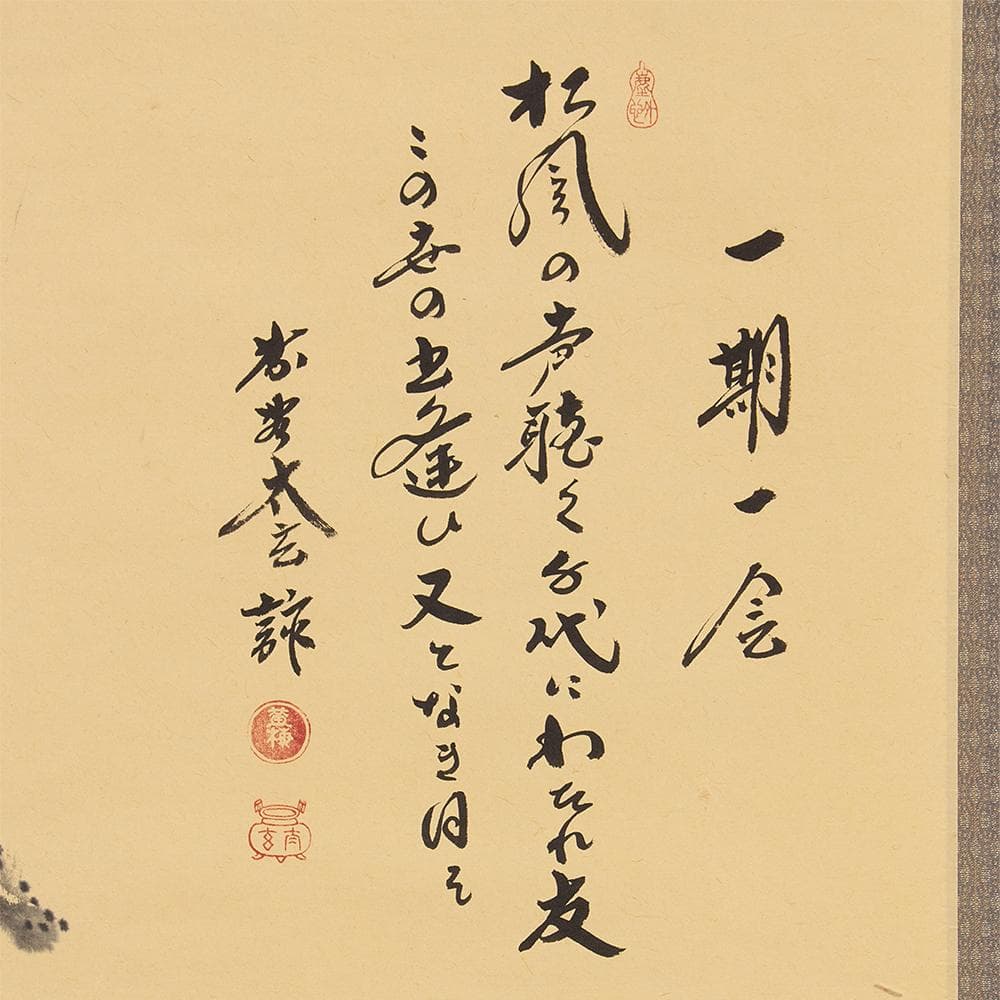 一期一会
松風の声聴く千代にわたれ友
この世の出逢ひ又となき日そ
紫野太玄詠
黄梅
太玄